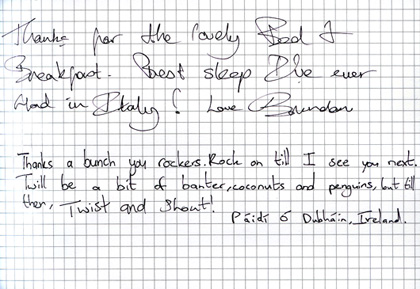 Thanks for the lovely Bed &
Breakfast. Best sleep I've ever
Had in Italy! Love Brendan
Thanks a bunch you rockers. Rock on till I see you next.
Twill be a bit of banter, coconuts and penguins, but till
then, Twist and Shout!
Páidí Ó Dubháin, Ireland.